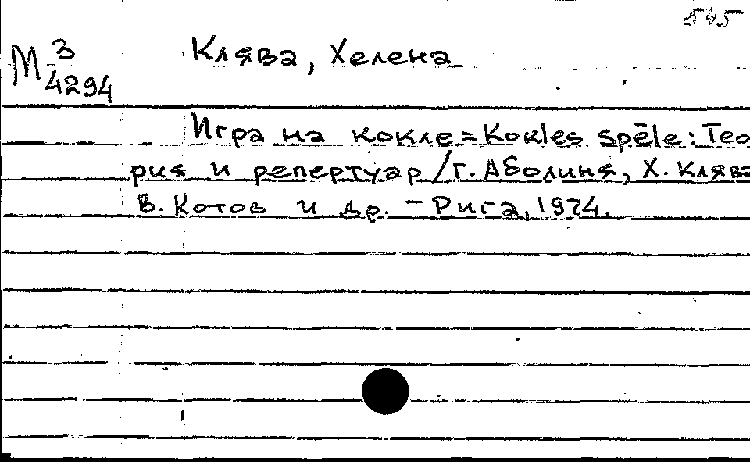 545
М 3 Клява, Хелена
4294
Игра на кокле = Kokles spēle: Тео
рия и репертуар / Г. Аболиня, Х. Клява
В. Котов и др. - Рига, 1974.